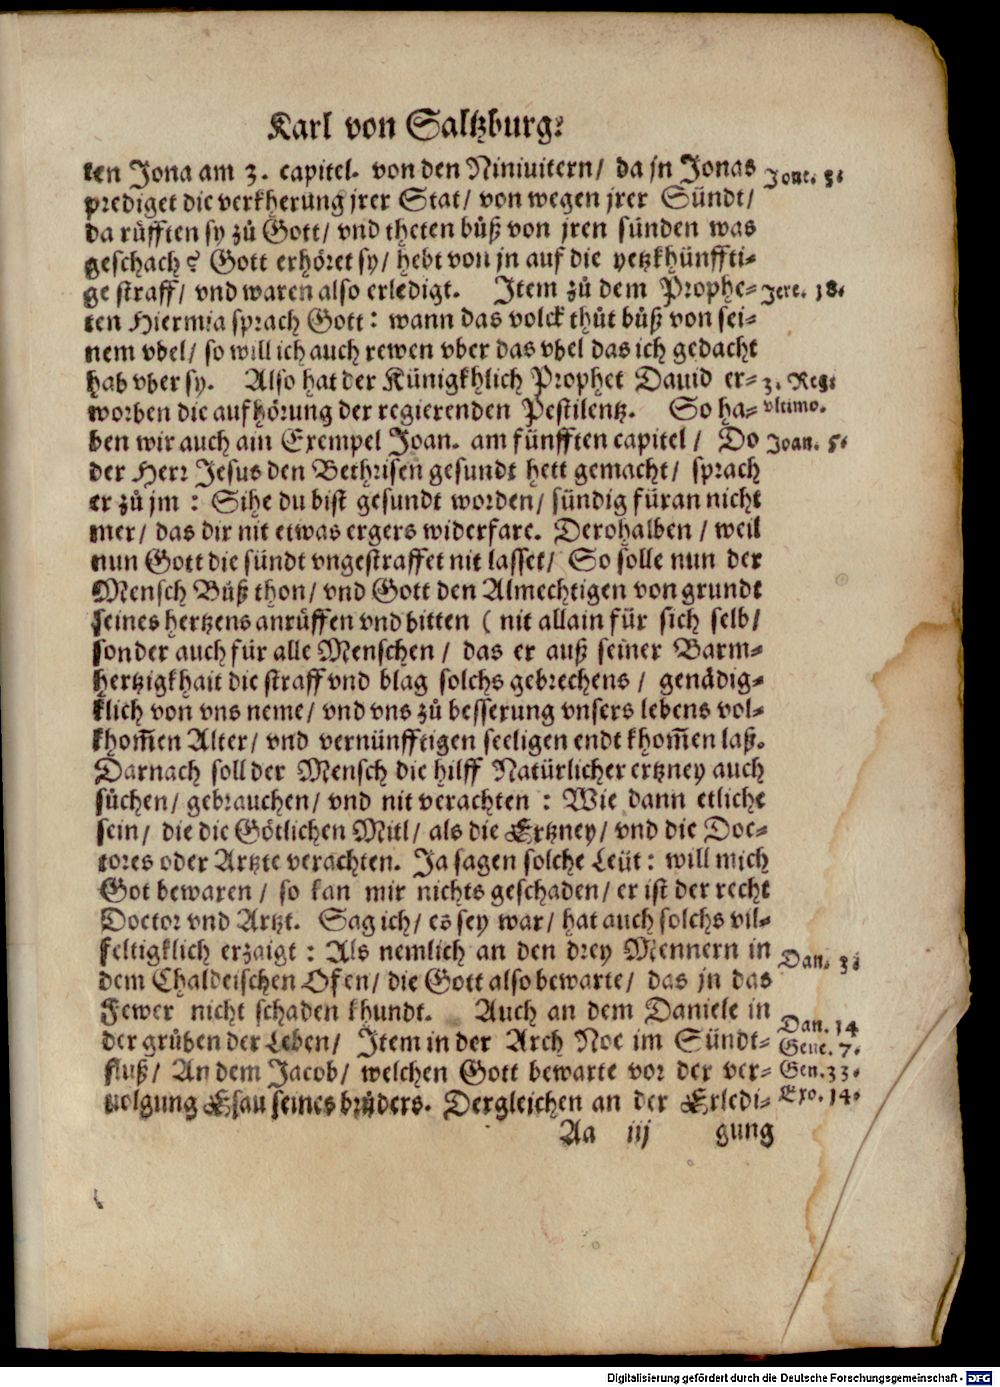 Karl von Saltzburg.
ten Jona am 3. capitel. von den Niniuitern/ da jn Jonas
Jone. 3.
prediget die verkherung jrer Stat/ von wegen jrer Sündt/
da růfften sy zů Gott/ vnd theten bůß von jren sünden was
geschach? Gott erhöret sy/ hebt von jn auf die yetzkhünffti-
ge straff/ vnd waren also erledigt. Item zů dem Prophe-
Jere. 18.
ten Hiermia sprach Gott: wann das volck thůt bůß von sei-
nem vbel/ so will ich auch rewen vber das vbel das ich gedacht
hab vber sy. Also hat der Künigkhlich Prophet Dauid er-
2. Reg.
worben die aufhörung der regierenden Pestilentz. So ha-
vltimo.
ben wir auch ain Exempel Joan. am fünfften capitel/ Do
Joan. 5.
der Herr Jesus den Bethrisen gesundt hett gemacht/ sprach
er zů jm: Sihe du bist gesundt worden/ sündig füran nicht
mer/ das dir nit etwas ergers widerfare. Derohalben/ weil
nun Gott die sündt vngestraffet nit lasset/ So solle nun der
Mensch Bůß thon/ vnd Gott den Almechtigen von grundt
seines hertzens anrůffen vnd bitten ( nit allain für sich selb/
sonder auch für alle Menschen/ das er auß seiner Barm-
hertzigkhait die straff vnd blag solchs gebrechens/ genädig-
klich von vns neme/ vnd vns zů besserung vnsers lebens vol-
khom̄en Alter/ vnd vernünfftigen seeligen endt khom̄en laß.
Darnach soll der Mensch die hilff Natürlicher ertzney auch
sůchen/ gebrauchen/ vnd nit verachten: Wie dann etliche
sein/ die die Götlichen Mitl/ als die Ertzney/ vnd die Doc-
tores oder Artzte verachten. Ja sagen solche Leüt: will mich
Got bewaren/ so kan mir nichts geschaden/ er ist der recht
Doctor vnd Artzt. Sag ich/ es sey war/ hat auch solchs vil-
feltigklich erzaigt: Als nemlich an den drey Mennern in
Dan. 3.
dem Chaldeischen Ofen/ die Gott also bewarte/ das jn das
Fewer nicht schaden khundt. Auch an dem Daniele in
Dan. 14
der grůben der Leben/ Item in der Arch Noe im Sündt-
Gene. 7.
fluß/ An dem Jacob/ welchen Gott bewarte vor der ver-
Gen. 33.
uolgung Esau seines brůders. Dergleichen an der Erledi-
Exo. 14.
Aa iij gung
Digitalisierung gefördert durch die Deutsche Forschungsgemeinschaft - DFG